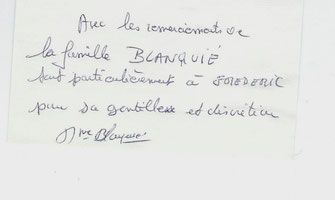 Avec les remerciements de
la famille BLANQUIÉ
tout particulièrement à FREDERIC
pour sa gentillesse et discrétion
Mme Blanquié